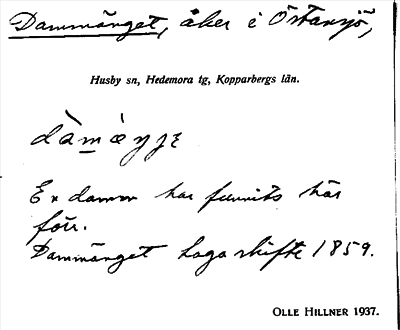 Dammänget, åker i Östansjö,
Husby sn, Hedemora tg, Kopparbergs län.
En damm har funnits här
förr.
Dammänget laga skifte 1859.
OLLE HILLNER 1937.